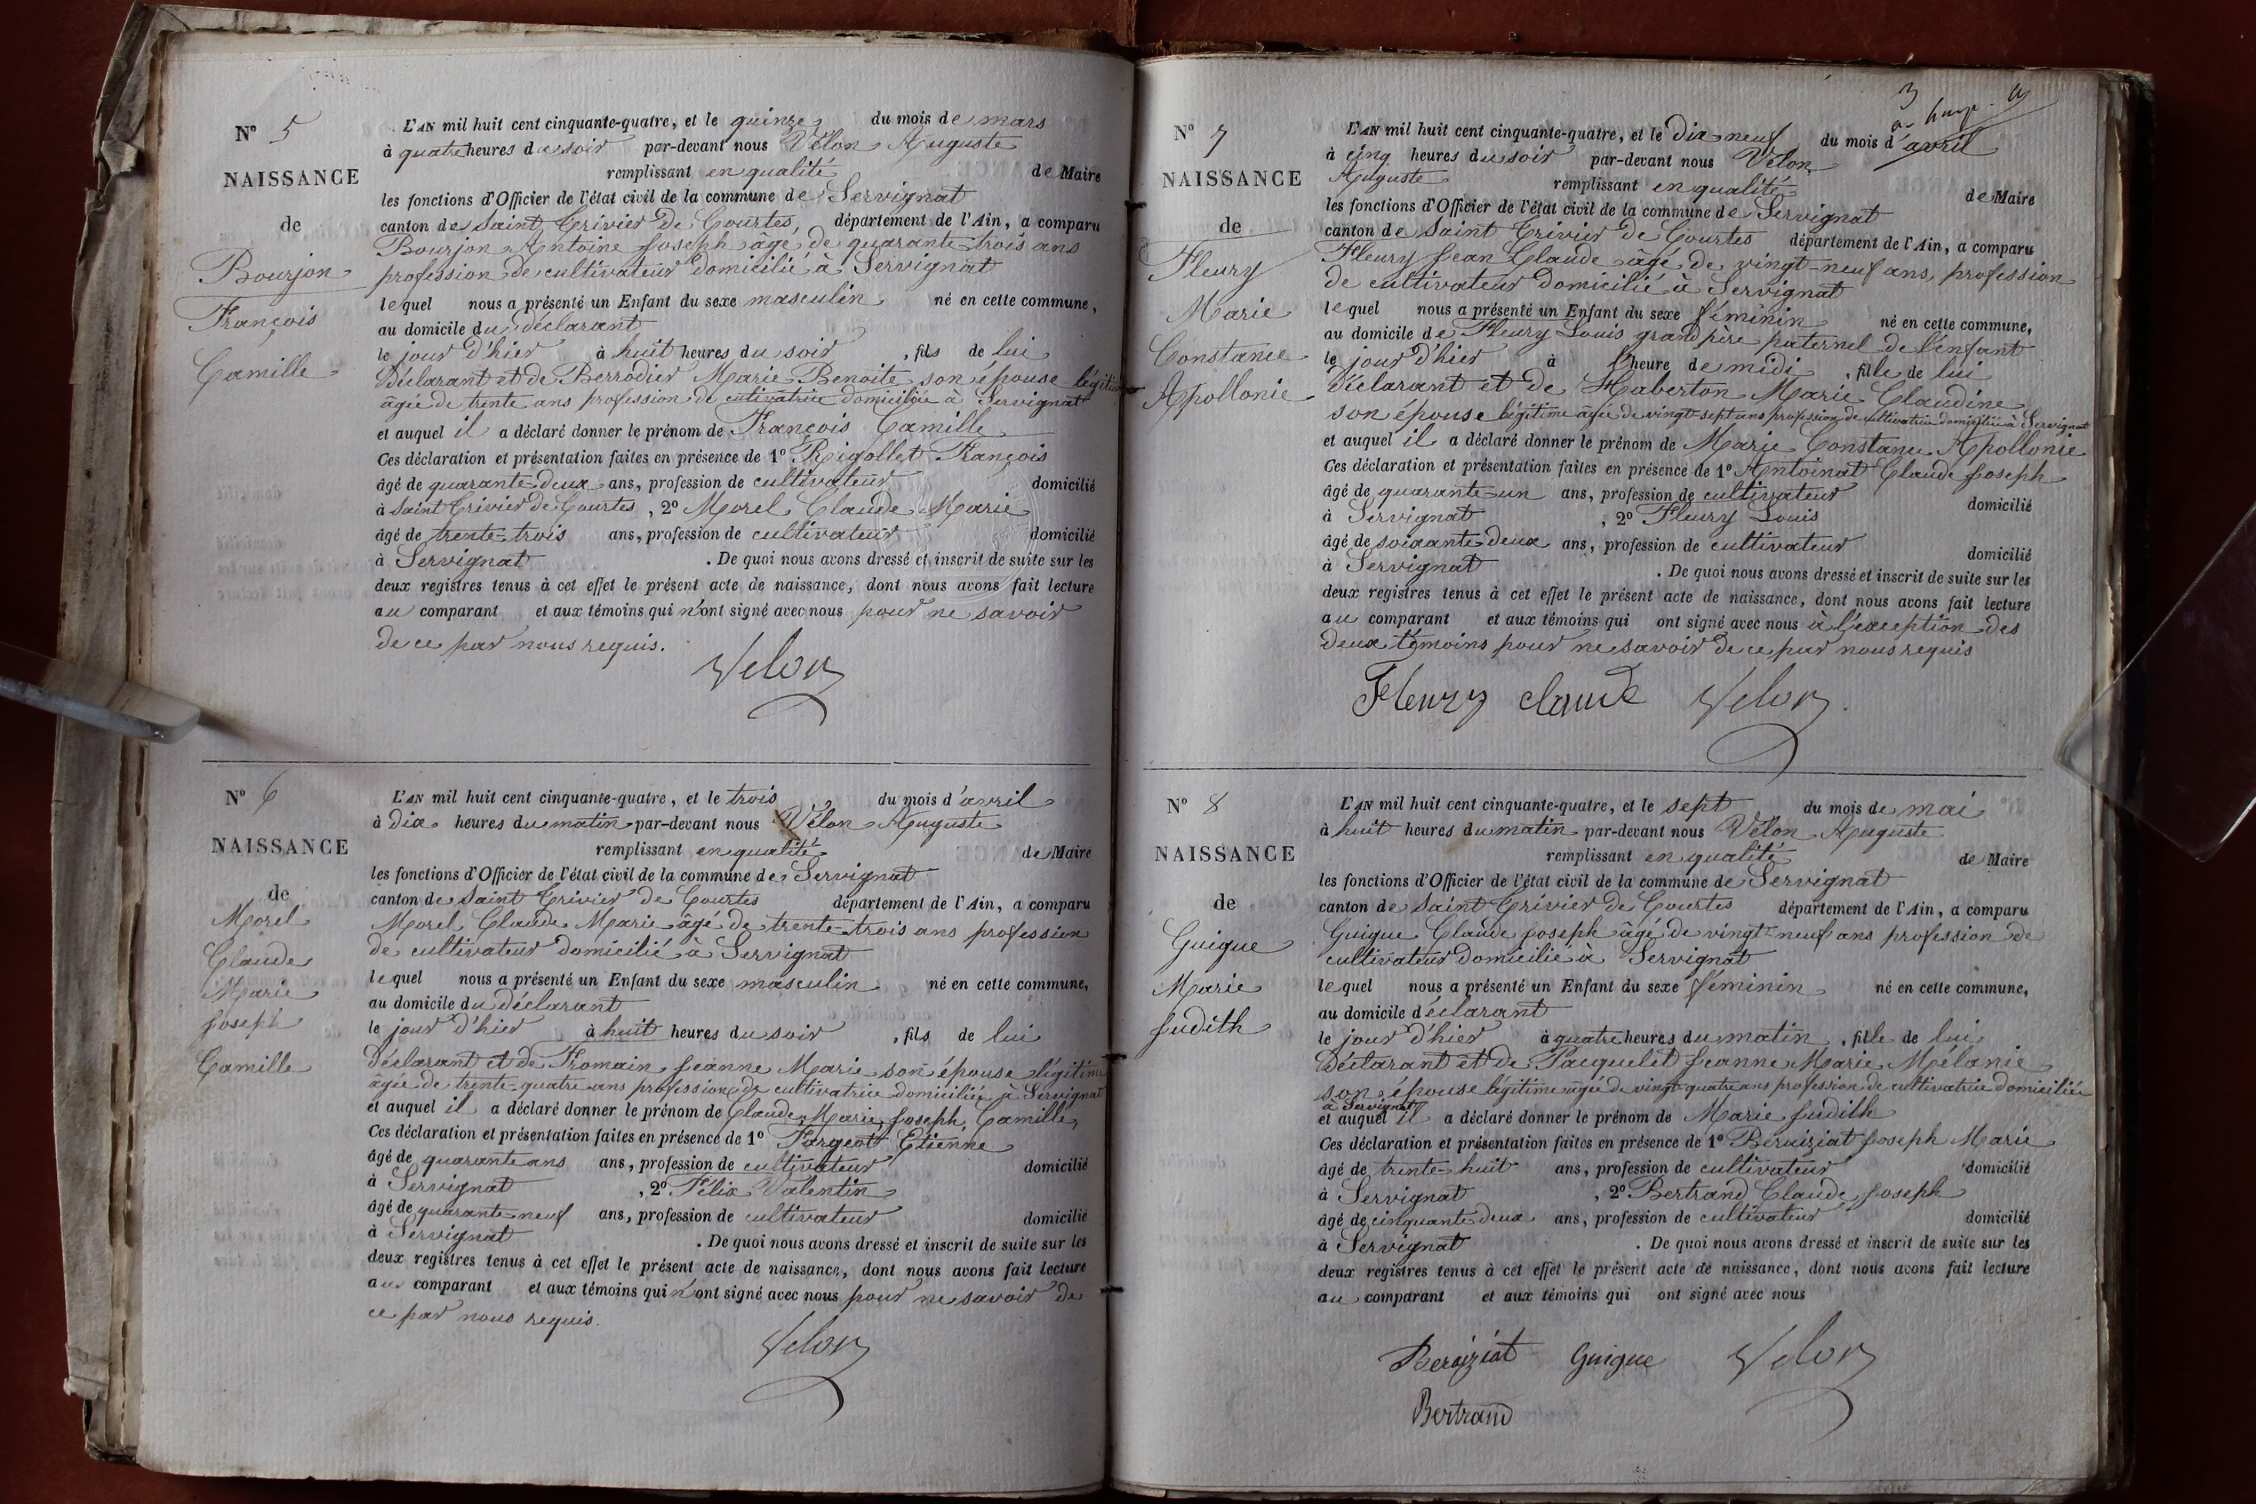 N° 5
NAISSANCE
de
Bourjon
François
Camille
L'AN mil huit cent cinquante-quatre, et le quinze du mois de mars
à quatre heures du soir par-devant nous Vélon Auguste
remplissant en qualité de Maire
les fonctions d'Officier de l'état civil de la commune de Servignat
canton de Saint Trivier de Courtes, département de l'Ain, a comparu
Bourjon Antoine Joseph âgé de quarante-trois ans
profession de cultivateur domicilié à Servignat
lequel nous a présenté un Enfant du sexe masculin né en cette commune,
au domicile du déclarant
le jour d'hier à huit heures du soir, fils de lui
Déclarant et de Berrodier Marie Benoite son épouse légitime
âgée de trente ans profession de cultivatrice domiciliée à Servignat
et auquel il a déclaré donner le prénom de François Camille
Ces déclaration et présentation faites en présence de 1° Rigollet François
âgé de quarante-deux ans, profession de cultivateur domicilié
à Saint Trivier de Courtes, 2° Morel Claude Marie
âgé de trente-trois ans, profession de cultivateur domicilié
à Servignat. De quoi nous avons dressé et inscrit de suite sur les
deux registres tenus à cet effet le présent acte de naissance, dont nous avons fait lecture
au comparant et aux témoins qui n'ont signé avec nous pour ne savoir
de ce par nous requis.
Velon
N° 6
NAISSANCE
de
Morel
Claude
Marie
Joseph
Camille
L'AN mil huit cent cinquante-quatre, et le trois du mois d'avril
à dix heures du matin par-devant nous Vélon Auguste
remplissant en qualité de Maire
les fonctions d'Officier de l'état civil de la commune de Servignat
canton de Saint Trivier de Courtes département de l'Ain, a comparu
Morel Claude Marie âgé de trente-trois ans profession
de cultivateur domicilié à Servignat
lequel nous a présenté un Enfant du sexe masculin né en cette commune,
au domicile du déclarant
le jour d'hier à huit heures du soir, fils de lui
Déclarant et de Fromain Jeanne Marie son épouse légitime
âgée de trente-quatre ans profession de cultivatrice domiciliée à Servignat
et auquel il a déclaré donner le prénom de Claude, Marie, Joseph, Camille,
Ces déclaration et présentation faites en présence de 1° Fargeot Etienne
âgé de quarante ans ans, profession de cultivateur domicilié
à Servignat, 2° Félix Valentin
âgé de quarante-neuf ans, profession de cultivateur domicilié
à Servignat. De quoi nous avons dressé et inscrit de suite sur les
deux registres tenus à cet effet le présent acte de naissance, dont nous avons fait lecture
au comparant et aux témoins qui n'ont signé avec nous pour ne savoir de
ce par nous requis.
Velon
3
N° 7
NAISSANCE
de
Fleury
Marie
Constance
Apollonie
L'AN mil huit cent cinquante-quatre, et le dix-neuf du mois d'avril
à cinq heures du soir par-devant nous Vélon
Auguste remplissant en qualité de Maire
les fonctions d'Officier de l'état civil de la commune de Servignat
canton de Saint Trivier de Courtes département de l'Ain, a comparu
Fleury Jean Claude âgé de vingt-neuf ans, profession
de cultivateur domicilié à Servignat
lequel nous a présenté un Enfant du sexe féminin né en cette commune,
au domicile de Fleury Louis grand père paternel de l'enfant
le jour d'hier à l'heure de midi, fille de lui
Déclarant et de Haberton Marie Claudine
son épouse légitime âgée de vingt-sept ans profession de cultivatrice domiciliée à Servignat
et auquel il a déclaré donner le prénom de Marie Constance Apollonie
Ces déclaration et présentation faites en présence de 1° Antoinat Claude Joseph
âgé de quarante-un ans, profession de cultivateur domicilié
à Servignat, 2° Fleury Louis
âgé de soixante deux ans, profession de cultivateur domicilié
à Servignat. De quoi nous avons dressé et inscrit de suite sur les
deux registres tenus à cet effet le présent acte de naissance, dont nous avons fait lecture
au comparant et aux témoins qui ont signé avec nous à l'exception des
deux témoins pour ne savoir de ce par nous requis
Fleury Claude Velon
N° 8
NAISSANCE
de
Guigue
Marie
Judith
L'AN mil huit cent cinquante-quatre, et le sept du mois de mai
à huit heures du matin par-devant nous Vélon Auguste
remplissant en qualité de Maire
les fonctions d'Officier de l'état civil de la commune de Servignat
canton de Saint Trivier de Courtes département de l'Ain, a comparu
Guigue Claude Joseph âgé de vingt-neuf ans profession de
cultivateur domicilié à Servignat
lequel nous a présenté un Enfant du sexe féminin né en cette commune,
au domicile déclarant
le jour d'hier à quatre heures du matin, fille de lui
Déclarant et de Pacquelet Jeanne Marie Mélanie
son épouse légitime âgée de vingt-quatre ans profession de cultivatrice domiciliée
à Servignat
et auquel il a déclaré donner le prénom de Marie Judith
Ces déclaration et présentation faites en présence de 1° Beraiziat Joseph Marie
âgé de trente-huit ans, profession de cultivateur domicilié
à Servignat, 2° Bertrand Claude Joseph
âgé de cinquante deux ans, profession de cultivateur domicilié
à Servignat. De quoi nous avons dressé et inscrit de suite sur les
deux registres tenus à cet effet le présent acte de naissance, dont nous avons fait lecture
au comparant et aux témoins qui ont signé avec nous
Beraiziat Guigue Velon
Bertrand